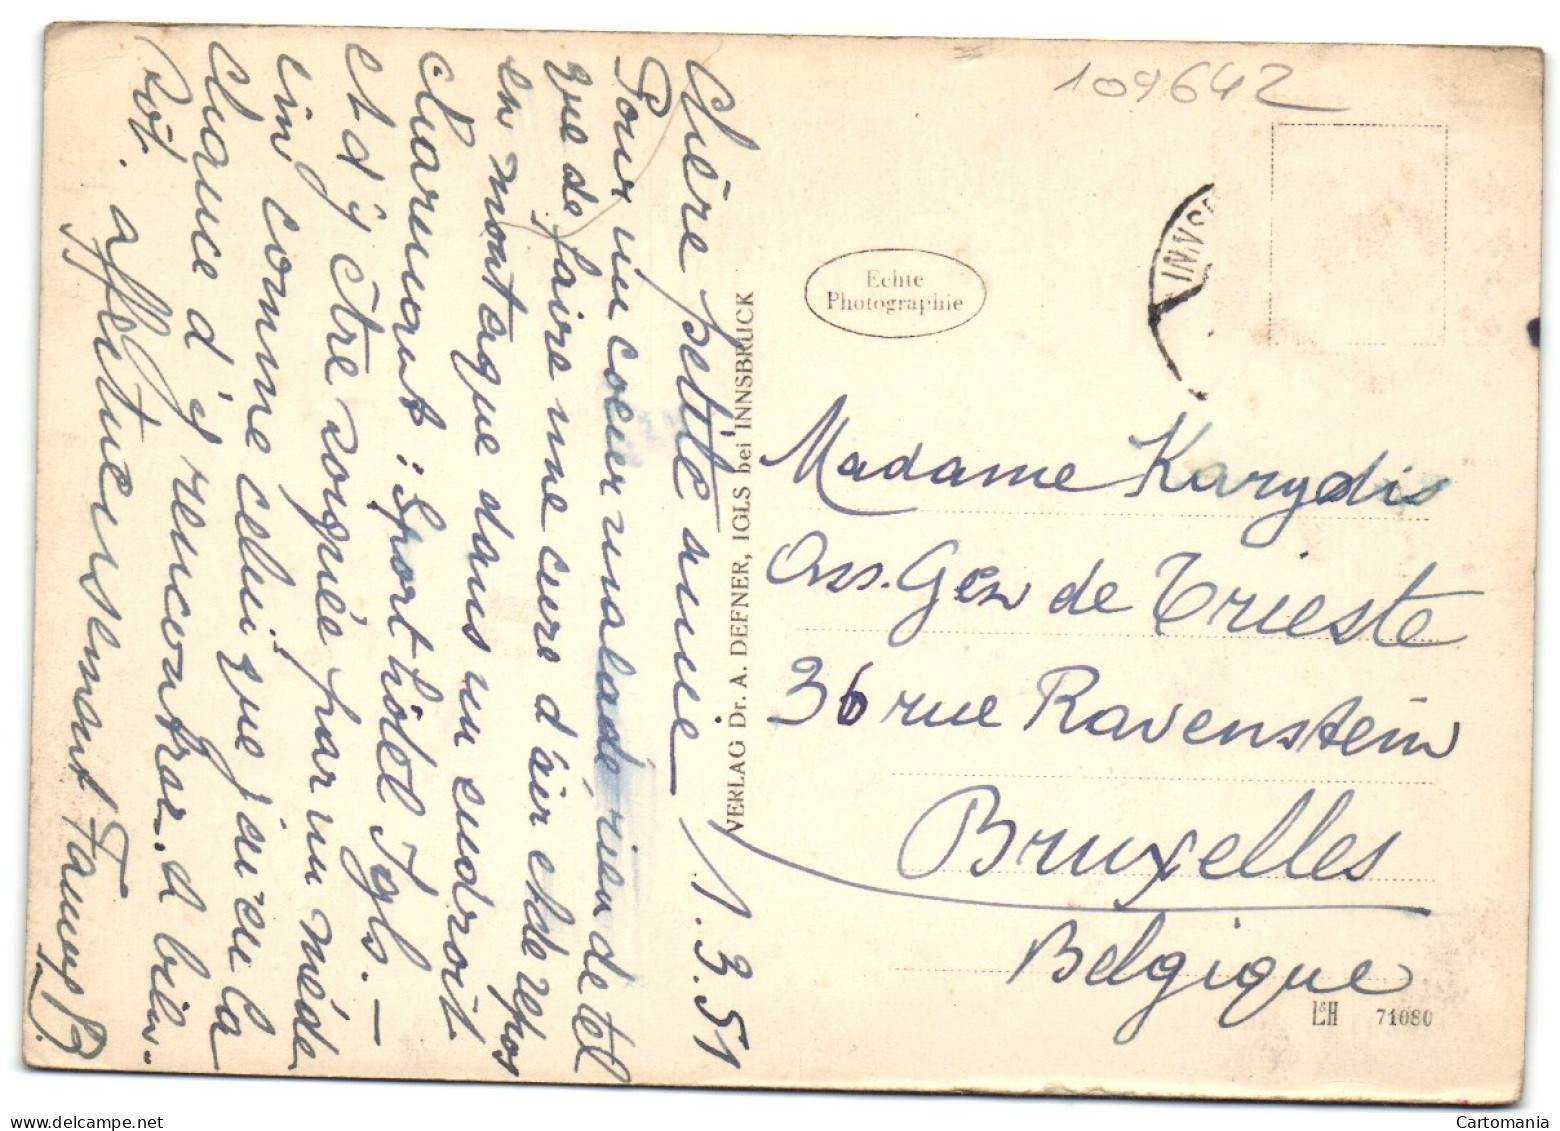 Chère petite amie 1.3.51
Pour un coeur malade rien de tel
que de faire une cure d'air et de repos
en montagne dans un endroit
charmant : Sport hôtel Igls. —
et d'y être soignée par un méde
cin comme celui que j'ai eu la
chance d'y rencontrer. à bien-
tôt. affectueusement
VERLAG Dr. A. DEFNER, IGLS bei INNSBRUCK
109642
Echte
Photographie
Madame Karydis
Ass. Gen de Trieste
36 rue Ravenstein
Bruxelles
Belgique
L&H 71080
hippostcard.com
Cartomania